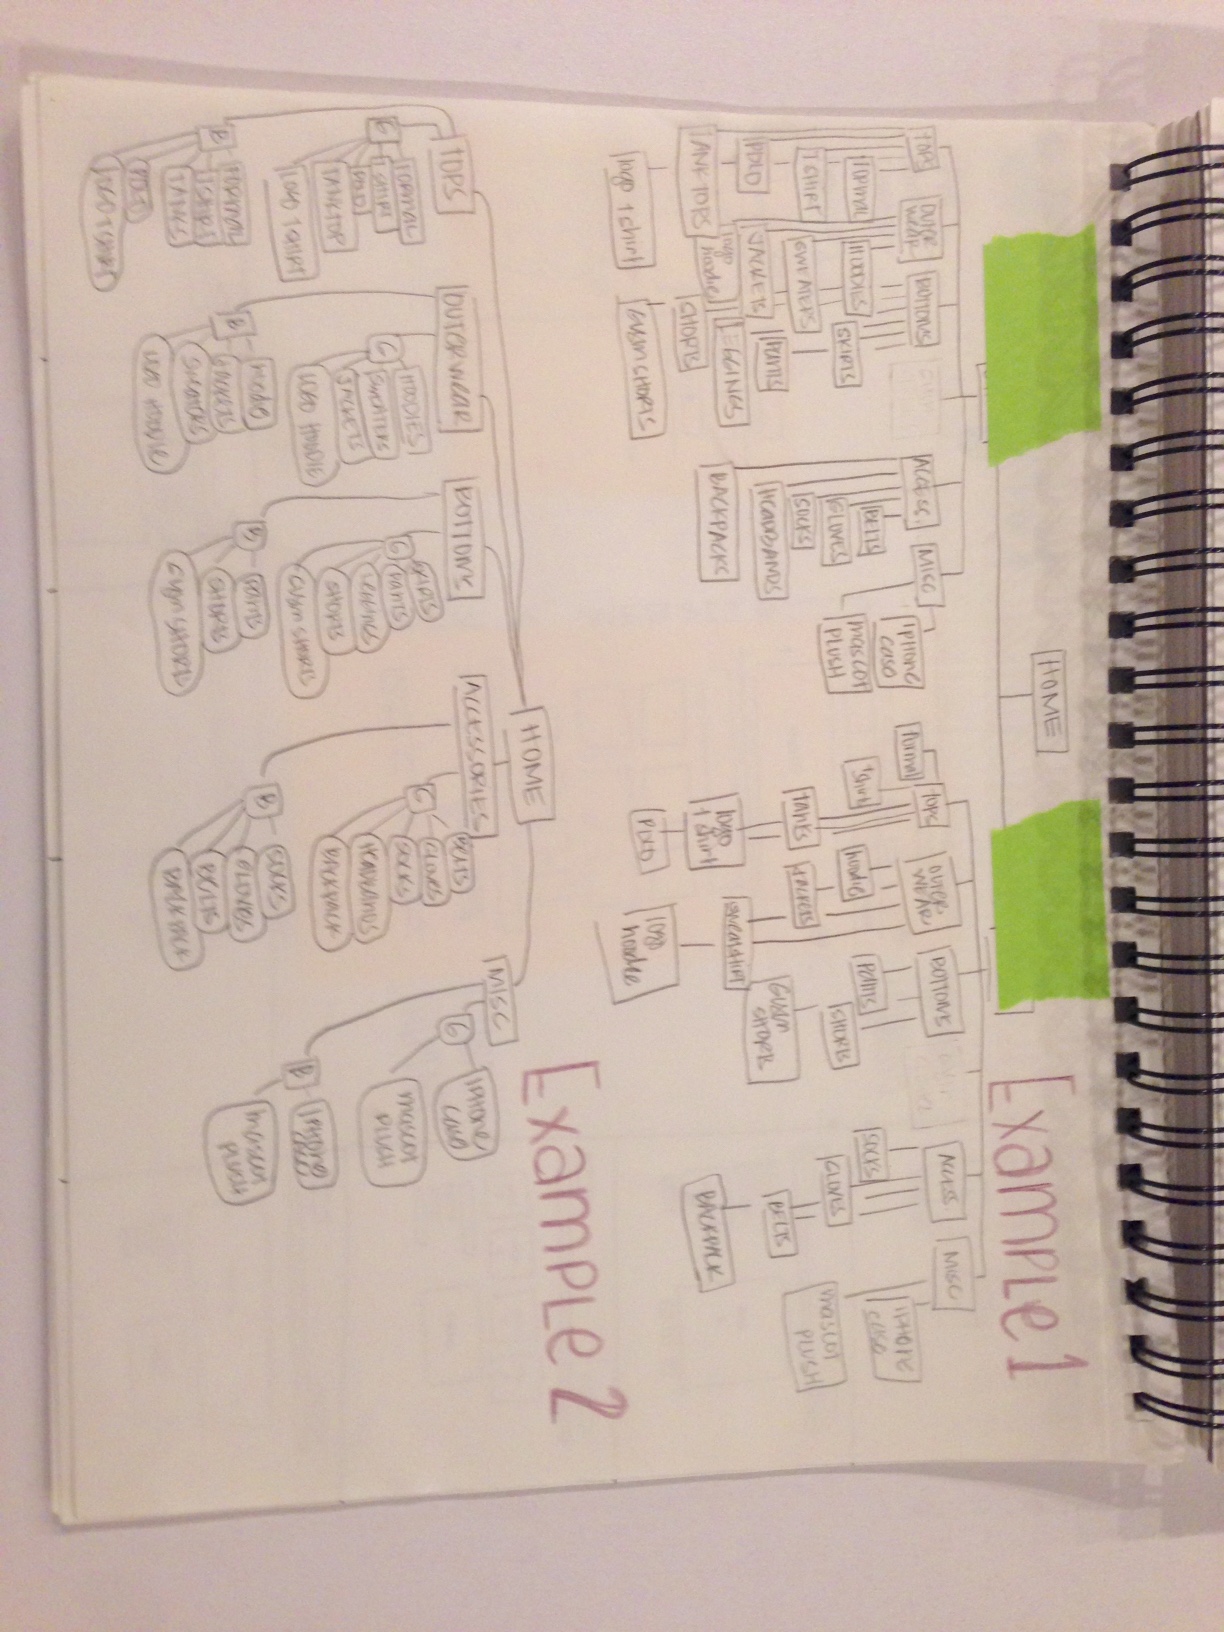 HOME
Example 1
TOPS
OUTER
WEAR
BOTTOMS
ACCESS.
MISC
FORMAL
T SHIRT
POLO
TANK TOPS
logo t shirt
HOODIES
SWEATERS
JACKETS
logo
hoodie
SKIRTS
PANTS
LEGGINGS
SHORTS
GYM SHORTS
BELTS
GLOVES
SOCKS
HEADBANDS
BACKPACKS
IPHONE
CASE
MASCOT
PLUSH
TOPS
OUTER
WEAR
BOTTOMS
ACCESS
MISC
formal
t shirt
TANKS
logo
t shirt
POLO
hoodie
JACKETS
SWEATSHIRT
logo
hoodie
PANTS
SHORTS
Gym
SHORTS
SOCKS
GLOVES
BELTS
BACKPACK
IPHONE
CASE
MASCOT
PLUSH
Example 2
HOME
TOPS
OUTERWEAR
BOTTOMS
ACCESSORIES
MISC
G
FORMAL
T SHIRT
POLO
TANK TOP
LOGO T SHIRT
B
FORMAL
T SHIRTS
TANKS
POLO
LOGO T SHIRT
G
HOODIES
SWEATERS
JACKETS
LOGO HOODIE
B
Hoodie
JACKETS
SWEATERS
LOGO HOODIE
G
SKIRTS
PANTS
LEGGINGS
SHORTS
GYM SHORTS
B
PANTS
SHORTS
GYM SHORTS
G
BELTS
GLOVES
SOCKS
HEADBANDS
BACKPACK
B
SOCKS
GLOVES
BELTS
BACKPACK
G
IPHONE
CASE
MASCOT
PLUSH
B
IPHONE
CASE
MASCOT
PLUSH